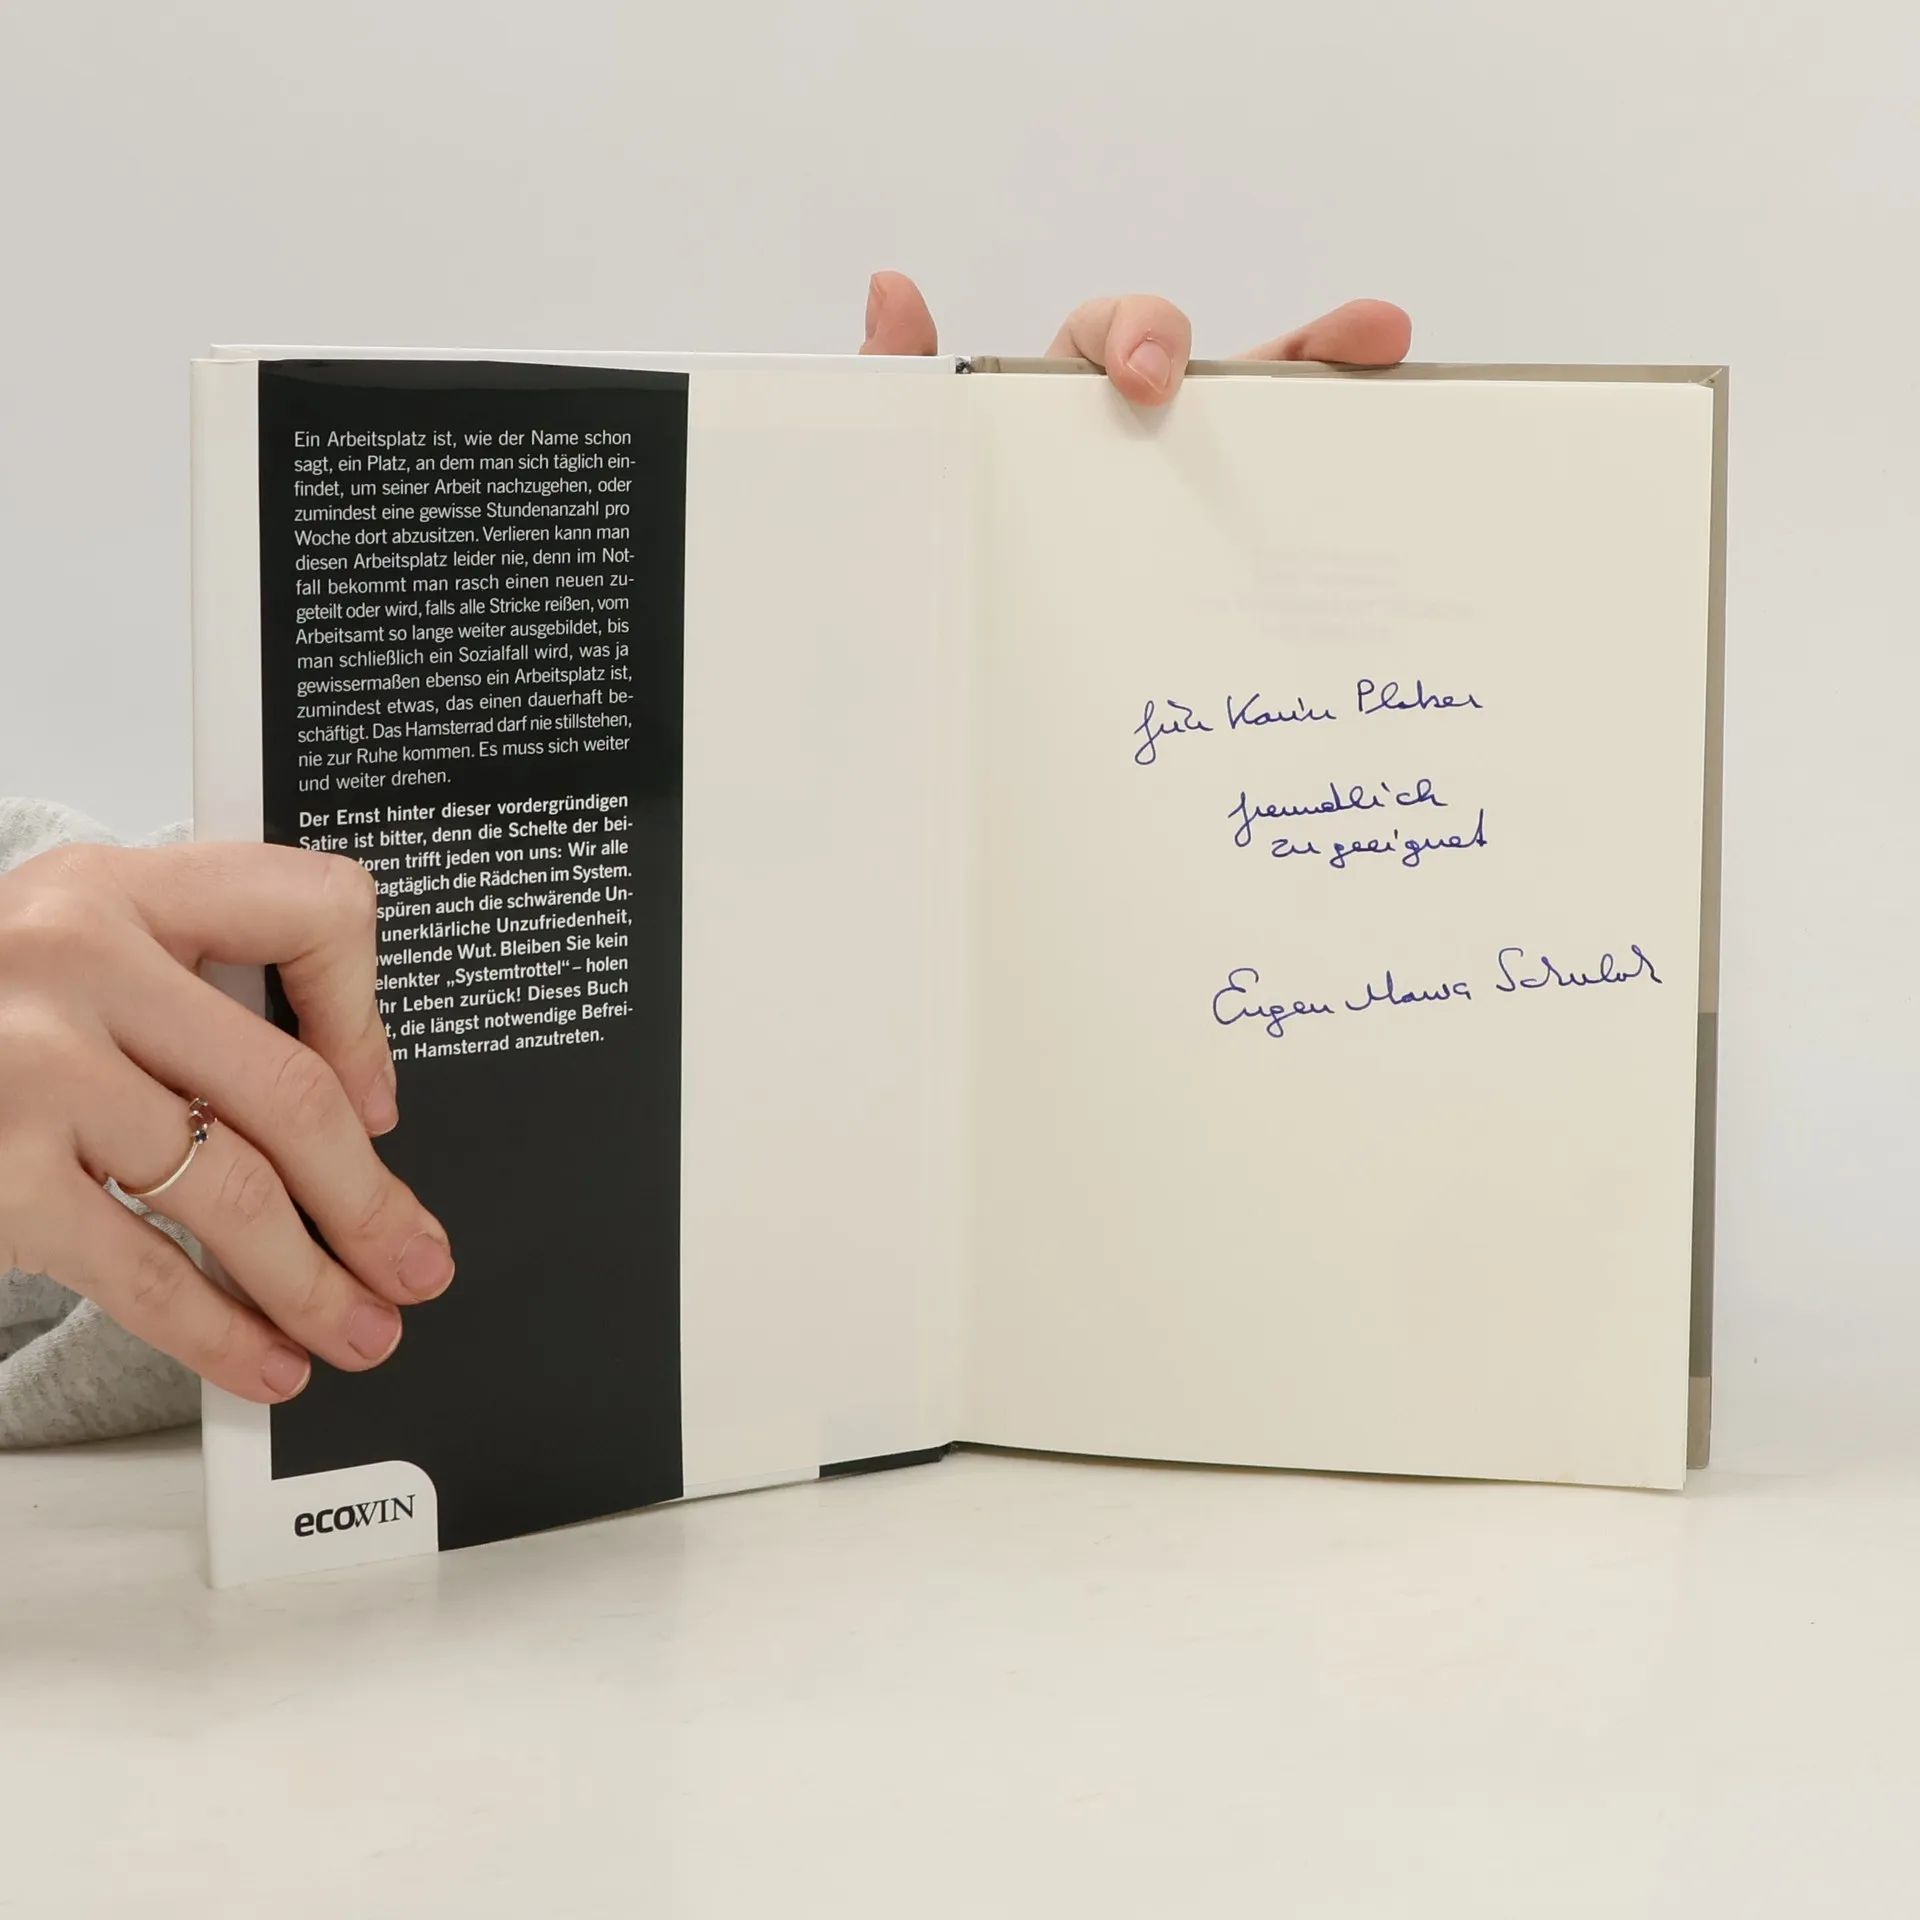 Ein Arbeitsplatz ist, wie der Name schon
sagt, ein Platz, an dem man sich täglich ein-
findet, um seiner Arbeit nachzugehen, oder
zumindest eine gewisse Stundenanzahl pro
Woche dort abzusitzen. Verlieren kann man
diesen Arbeitsplatz leider nie, denn im Not-
fall bekommt man rasch einen neuen zu-
geteilt oder wird, falls alle Stricke reißen, vom
Arbeitsamt so lange weiter ausgebildet, bis
man schließlich ein Sozialfall wird, was ja
gewissermaßen ebenso ein Arbeitsplatz ist,
zumindest etwas, das einen dauerhaft be-
schäftigt. Das Hamsterrad darf nie stillstehen,
nie zur Ruhe kommen. Es muss sich weiter
und weiter drehen.
Der Ernst hinter dieser vordergründigen
Satire ist bitter, denn die Schelte der bei-
toren trifft jeden von uns: Wir alle
tagtäglich die Rädchen im System.
spüren auch die schwärende Un-
unerklärliche Unzufriedenheit,
wellende Wut. Bleiben Sie kein
elenkter „Systemtrottel“ – holen
hr Leben zurück! Dieses Buch
t, die längst notwendige Befrei-
m Hamsterrad anzutreten.
ecoWIN
für Karin
freundlich
zugeeignet
Eugen Maria Schulak